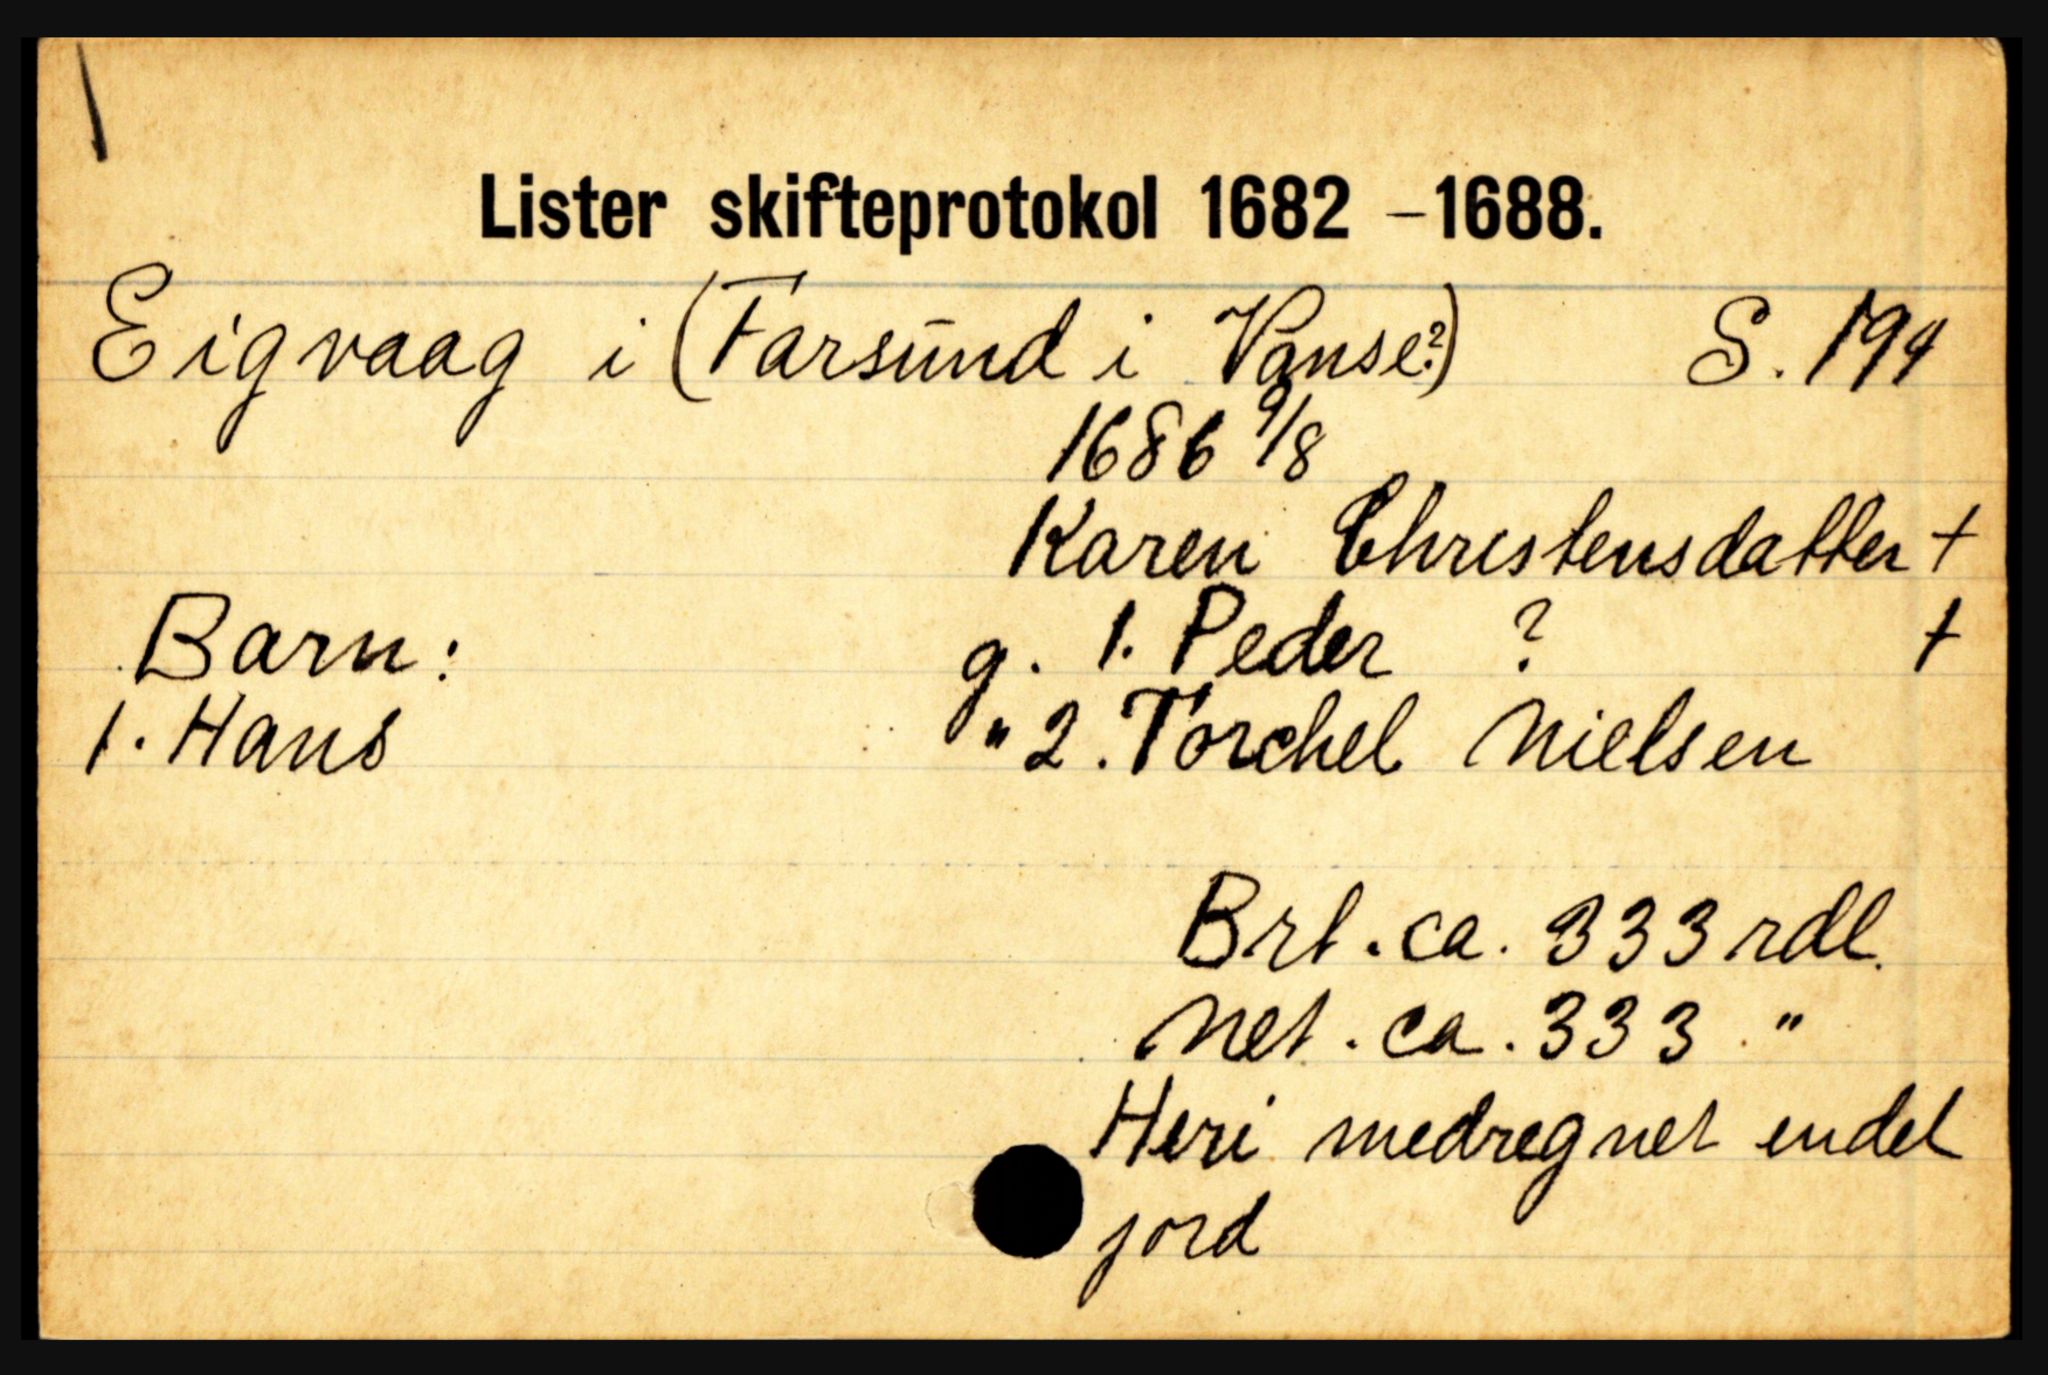 Lister skifteprotokol 1682 – 1688.
Eigvaag i (Farsund i Vanse?) S. 194
1686 9/8
Karen Christensdatter +
Barn: g. 1. Peder ? +
1. Hans " 2. Torchel Nielsen
Brt. ca. 333 rdl.
Net. ca. 333 "
Heri medregnet endel
jord